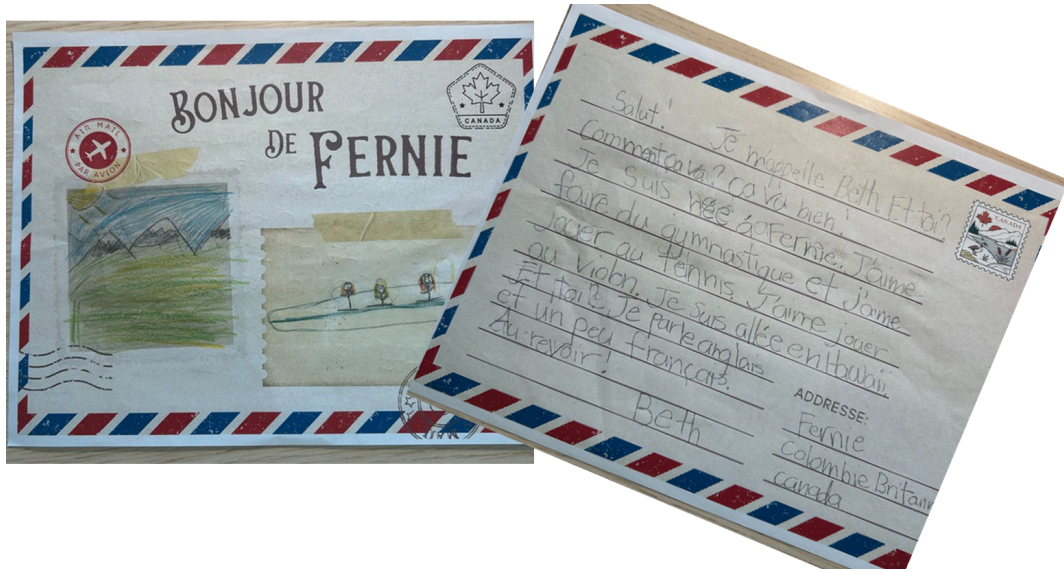 BONJOUR
DE FERNIE
CANADA
AIR MAIL
PAR AVION
Salut! Je m'appelle Beth. Et toi?
Comment ça va? Ça va bien!
Je suis née à Fernie. J'aime
faire du gymnastique et j'aime
jouer au tennis. J'aime jouer
au violon. Je suis allée en Hawaii.
Et toi? Je parle anglais
et un peu français.
Au revoir!
Beth
CANADA
ADDRESSE:
Fernie
Colombie Britann
canada